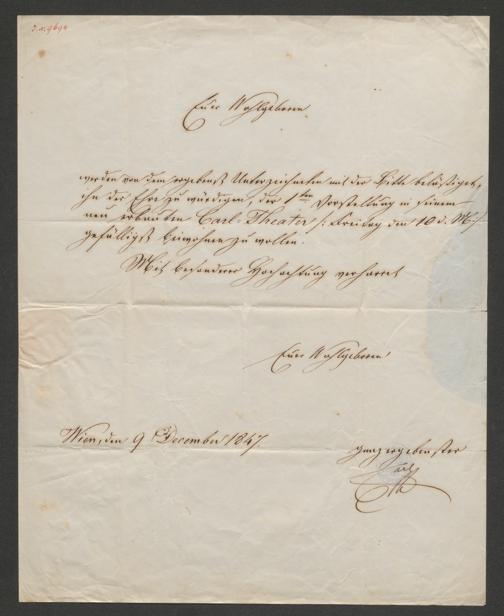 Euer Wohlgeboren
werden von dem ergebenst Unterzeichneten mit der Bitte belästiget,
ihn der Ehre zu würdigen, der 1ten Vorstellung in seinem
neu erbauten Carl-Theater /: Freitag den 10 d. M :/
gefälligst beiwohnen zu wollen.
Mit besonderer Hochachtung verharret
Euer Wohlgeboren
Wien, den 9 December 1847.
ganz ergebenster
Carl